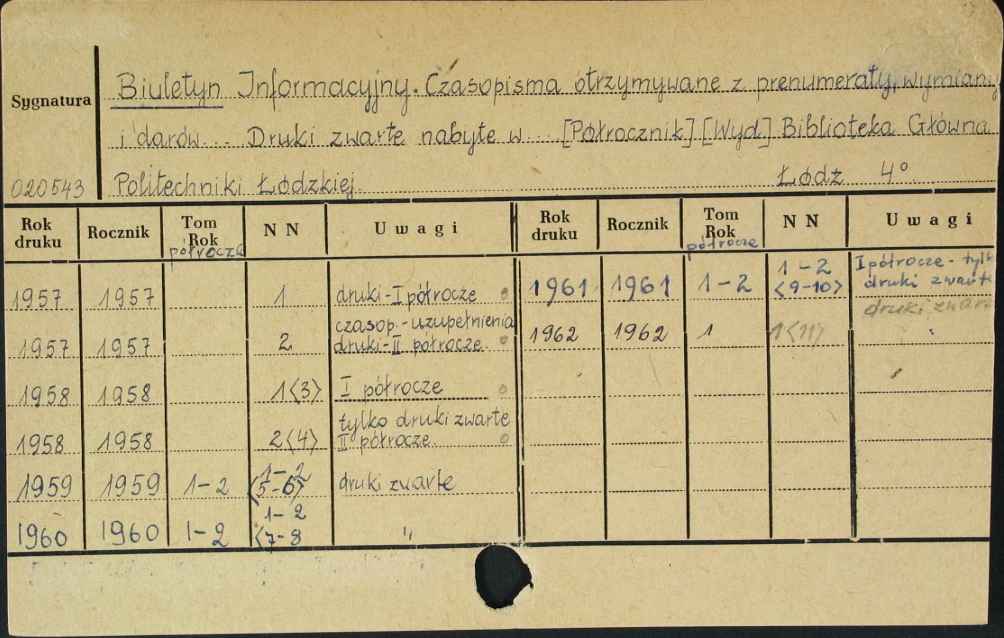 Sygnatura
Biuletyn Informacyjny. Czasopisma otrzymywane z prenumeraty, wymiany
i darów... Druki zwarte nabyte w.... [Półrocznik] [Wyd.] Biblioteka Główna
020543 Politechniki Łódzkiej Łódź 4°
Rok druku Rocznik Tom Rok półrocze NN Uwagi Rok druku Rocznik Tom Rok półrocze NN Uwagi
1957 1957 1 druki - I półrocze 1961 1961 1-2 1-2 <9-10> I półrocze - tylko druki zwarte
1957 1957 2 czasop. - uzupełnienia druki - II półrocze 1962 1962 1 1<11> druki zwarte "
1958 1958 1<3> I półrocze
1958 1958 2<4> tylko druki zwarte II półrocze
1959 1959 1-2 1-2 <5-6> druki zwarte
1960 1960 1-2 1-2 <7-8 "